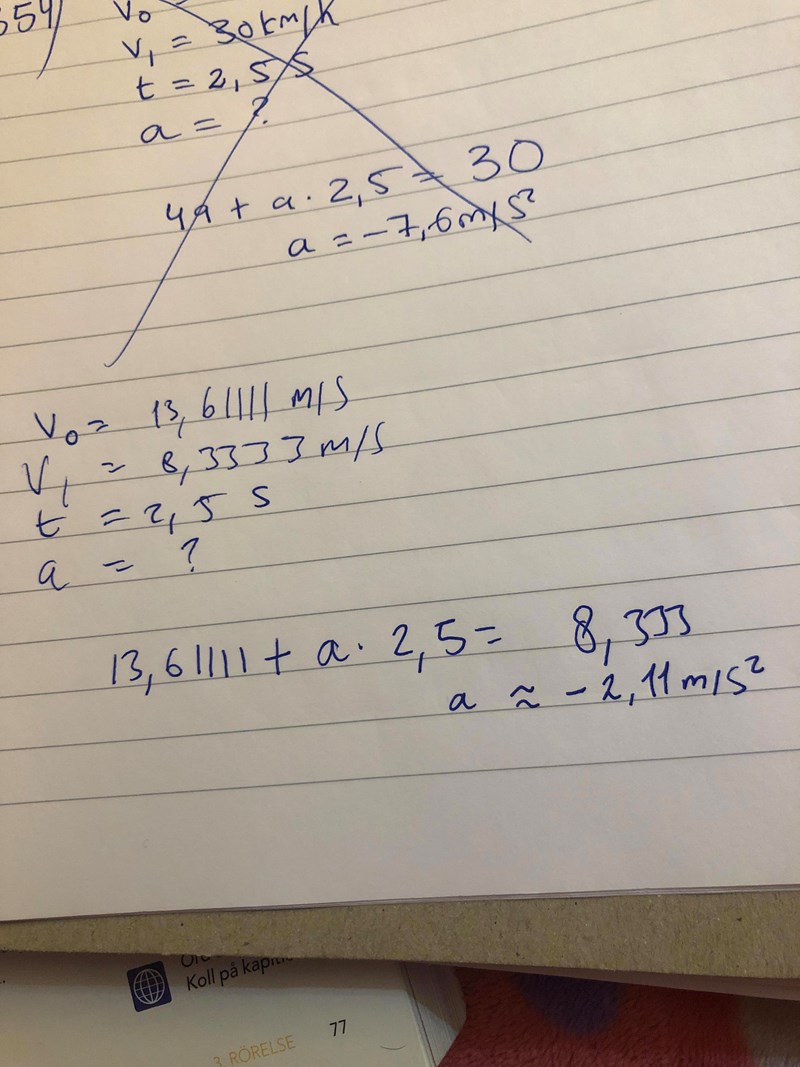 354)
V₀
V₁ = 30 km/h
t = 2,5 s
a = ?
49 + a · 2,5 = 30
a = -7,6 m/s²
V₀ = 13,61111 m/s
V₁ = 8,3333 m/s
t = 2,5 s
a = ?
13,61111 + a · 2,5 = 8,333
a ≈ -2,11 m/s²
Koll på
3. RÖRELSE 77